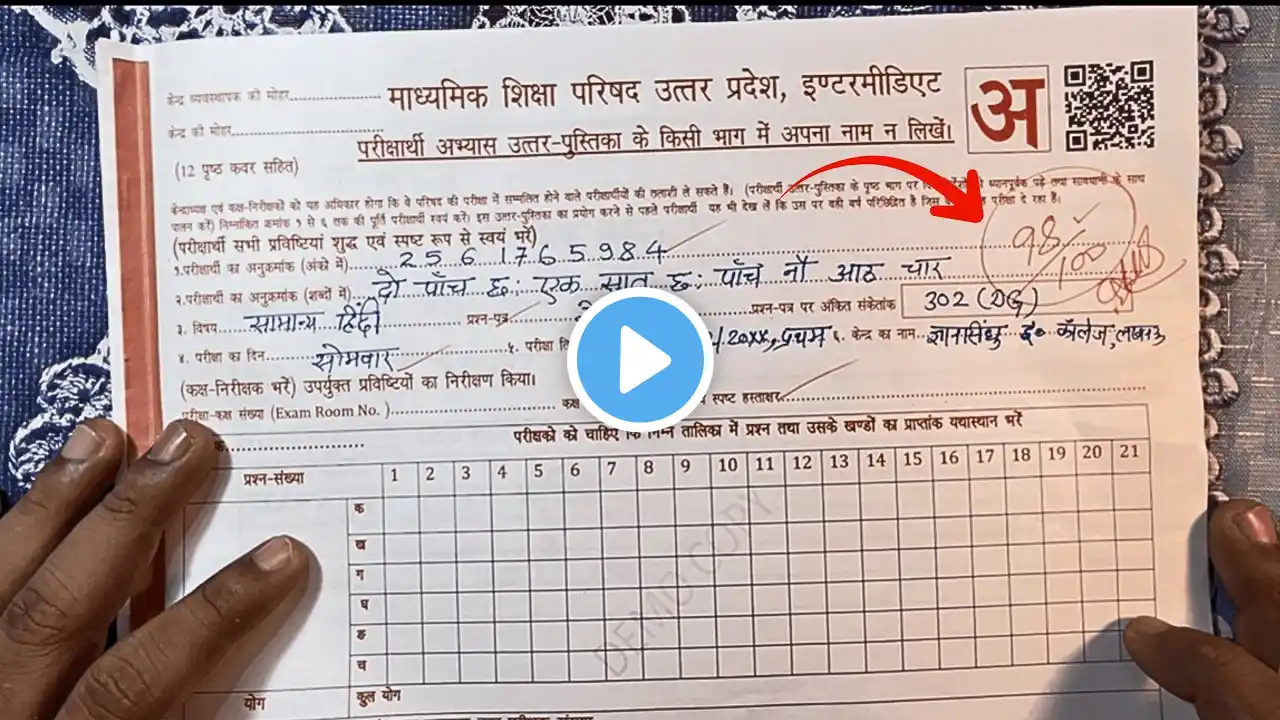 केन्द्र व्यवस्थापक की मोहर
माध्यमिक शिक्षा परिषद उत्तर प्रदेश, इण्टरमीडिएट
अ
केन्द्र की मोहर
परीक्षार्थी अभ्यास उत्तर-पुस्तिका के किसी भाग में अपना नाम न लिखें।
(12 पृष्ठ कवर सहित)
केन्द्राध्यक्ष एवं कक्ष-निरीक्षकों को यह अधिकार होगा कि वे परिषद की परीक्षा में सम्मलित होने वाले परीक्षार्थीयों की तलाशी ले सकते है। (परीक्षार्थी उत्तर-पुस्तिका के पृष्ठ भाग पर ध्यानपूर्वक पढ़े तथा सावधानी के साथ
पालन करें) निम्नांकित क्रमांक १ से ६ तक की पूर्ति परीक्षार्थी स्वयं करें। इस उत्तर-पुस्तिका का प्रयोग करने से पहले परीक्षार्थी यह भी देख लें कि उस पर वही वर्ष जिस परीक्षा दे रहा है।
(परीक्षार्थी सभी प्रविष्टियां शुद्ध एवं स्पष्ट रूप से स्वयं भरें)
98/100
१.परीक्षार्थी का अनुक्रमांक (अंको में) 256 1765984
२.परीक्षार्थी का अनुक्रमांक (शब्दों में) दो पाँच छः एक सात छः पाँच नौ आठ चार
३. विषय सामान्य हिंदी प्रश्न-पत्र प्रश्न-पत्र पर अंकित संकेतांक 302(DG)
४. परीक्षा का दिन सोमवार ५. परीक्षा /20XX, प्रथम ६. केन्द्र का नाम ज्ञानसिंधु इ० कॉलेज, लखनऊ
(कक्ष-निरीक्षक भरें) उपर्युक्त प्रविष्टियों का निरीक्षण किया।
परीक्षा-कक्ष संख्या (Exam Room No. ) कक्ष स्पष्ट हस्ताक्षर
परीक्षको को चाहिए कि निम्न तालिका में प्रश्न तथा उसके खण्डों का प्राप्तांक यथास्थान भरें
प्रश्न-संख्या 1 2 3 4 5 6 7 8 9 10 11 12 13 14 15 16 17 18 19 20 21
क
ख
ग
घ
ङ
च
DEMO COPY
योग कुल योग